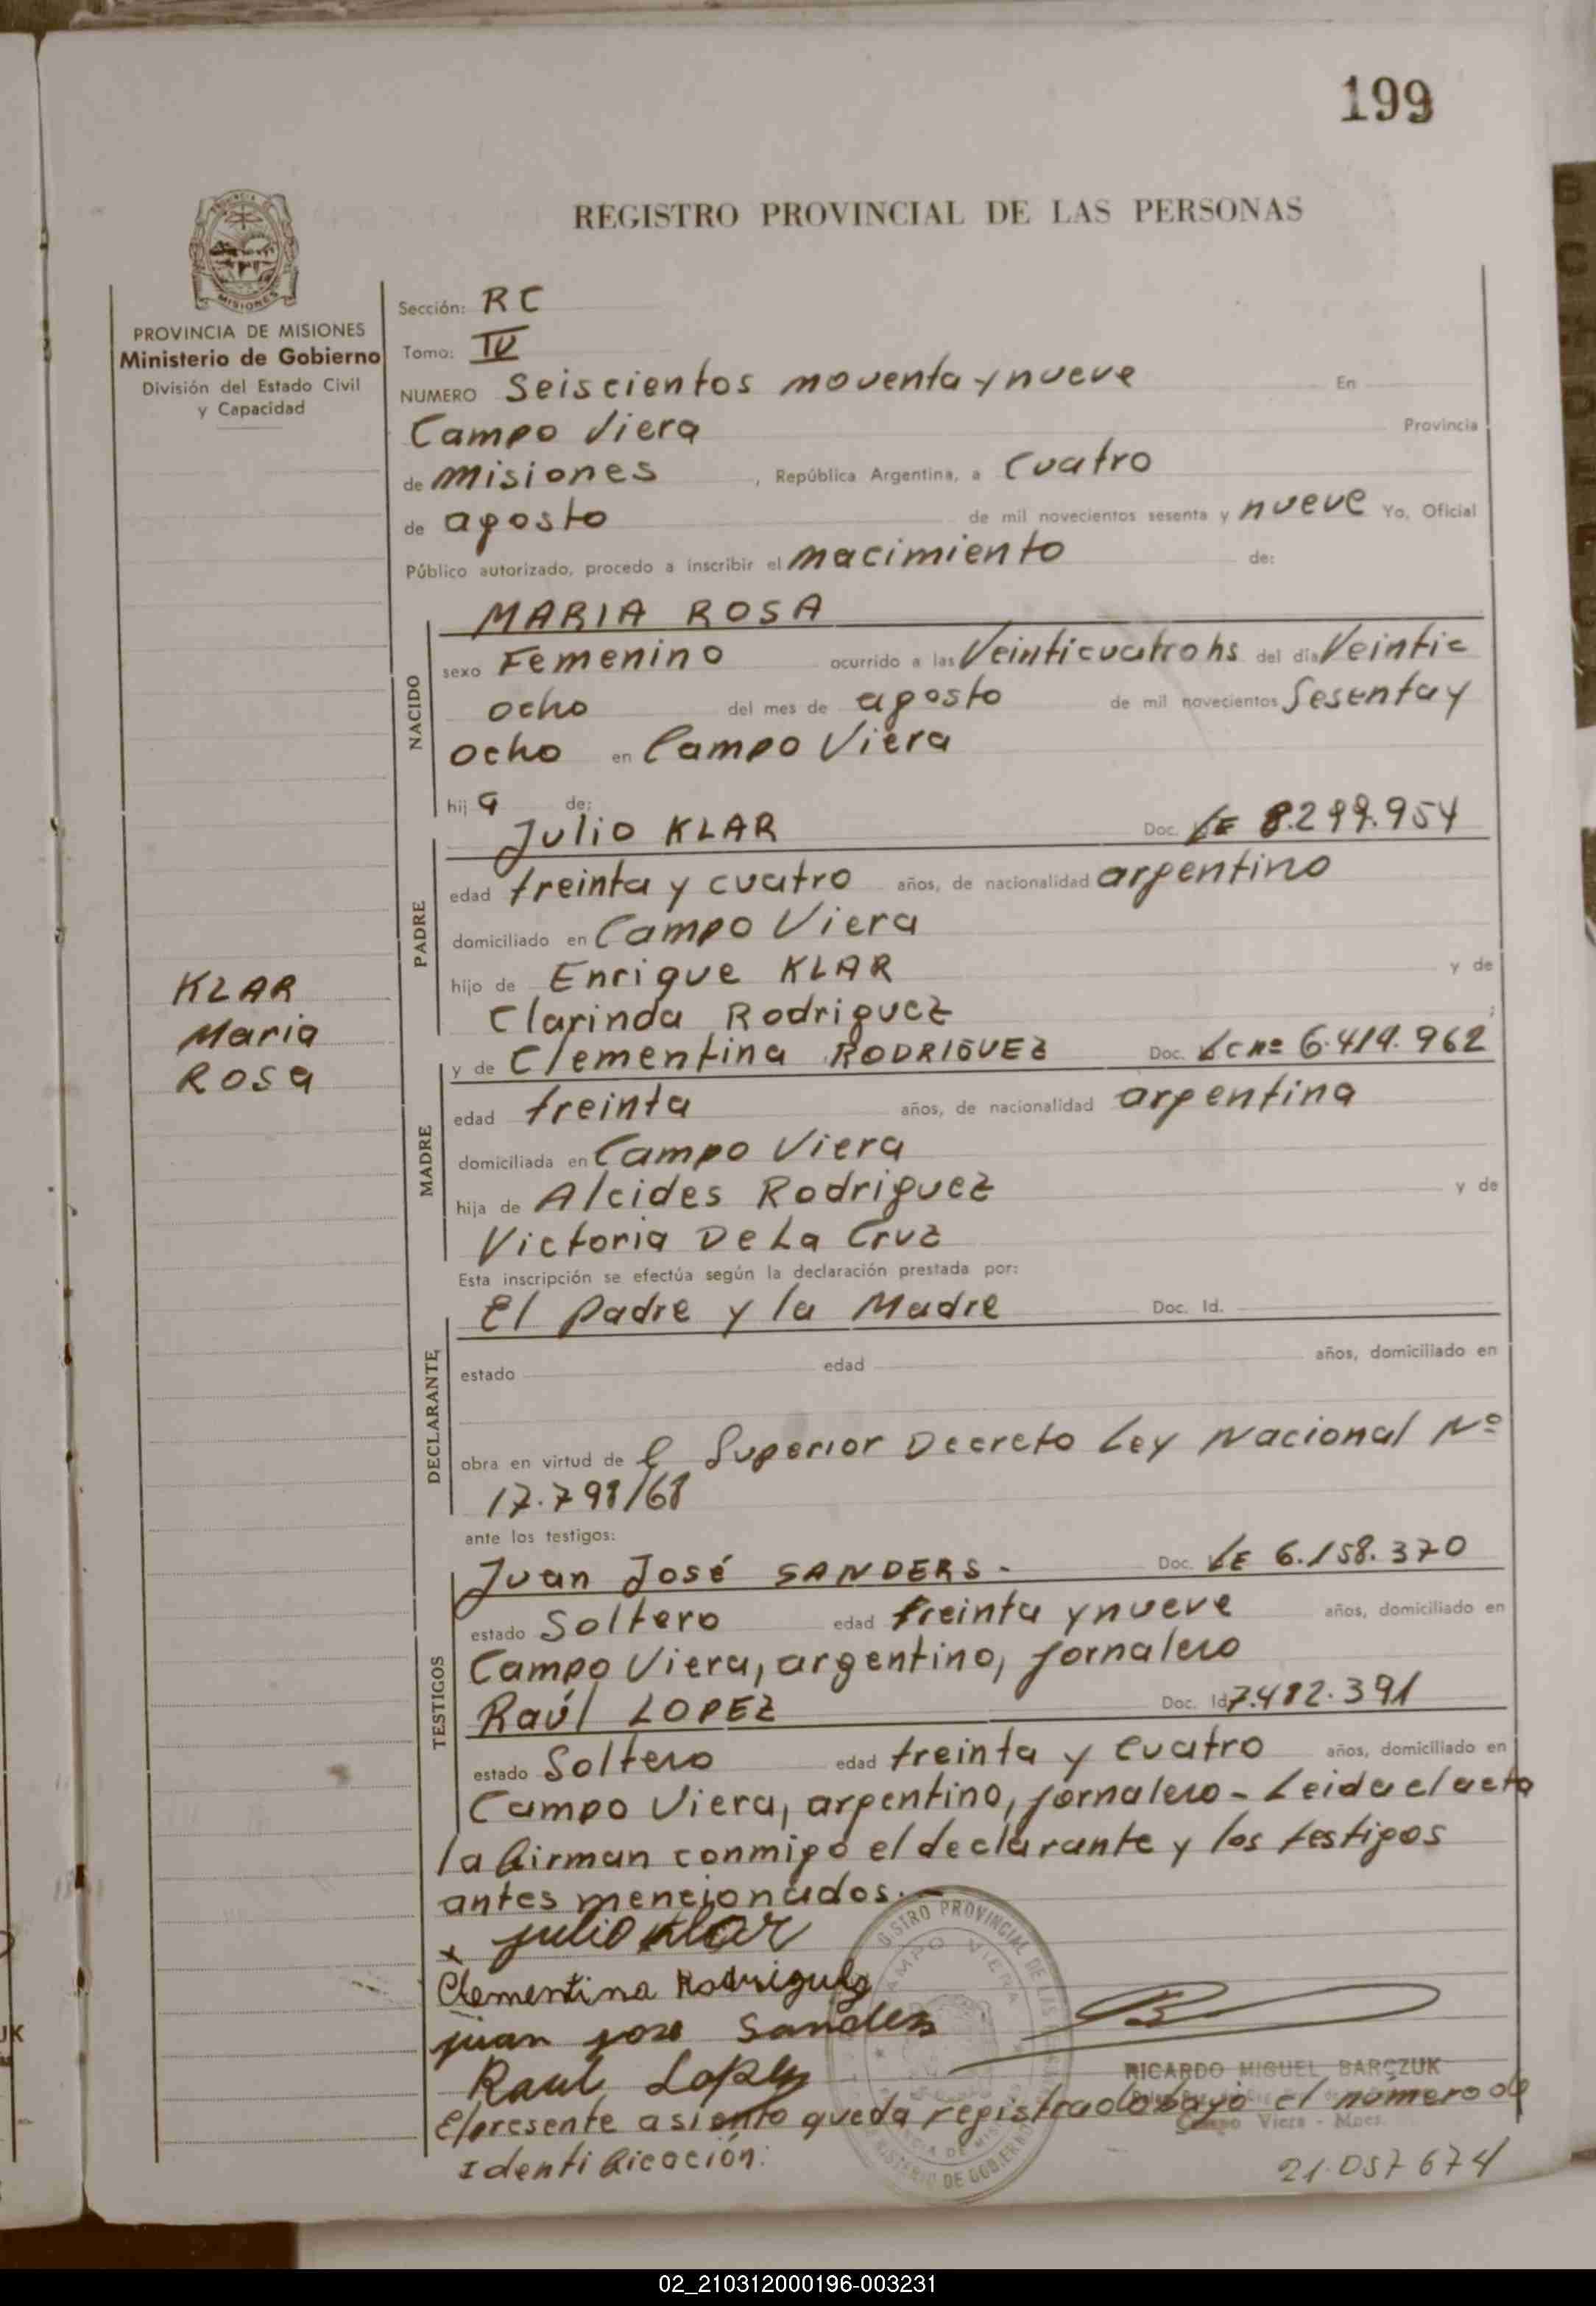 199
REGISTRO PROVINCIAL DE LAS PERSONAS
PROVINCIA DE MISIONES
Ministerio de Gobierno
División del Estado Civil
y Capacidad
Sección: RC
Tomo: IV
NUMERO Seiscientos noventa y nueve En
Campo Viera Provincia
de Misiones, República Argentina, a Cuatro
de agosto de mil novecientos sesenta y nueve Yo, Oficial
Público autorizado, procedo a inscribir el nacimiento de:
NACIDO
MARIA ROSA
sexo Femenino ocurrido a las Veinticuatro hs del día Veintic
ocho del mes de agosto de mil novecientos Sesenta y
ocho en Campo Viera
hija de:
PADRE
Julio KLAR Doc. LE 8.299.954
edad treinta y cuatro años, de nacionalidad argentino
domiciliado en Campo Viera
hijo de Enrique KLAR y de
Clarinda Rodriguez ;
KLAR
Maria
Rosa
MADRE
y de Clementina RODRIGUEZ Doc. LC nº 6.419.962
edad treinta años, de nacionalidad argentina
domiciliada en Campo Viera
hija de Alcides Rodriguez y de
Victoria De La Cruz
Esta inscripción se efectúa según la declaración prestada por:
DECLARANTE
El Padre y la Madre Doc. Id.
estado edad años, domiciliado en
obra en virtud de l Superior Decreto Ley Nacional Nº
17.798/68
ante los testigos:
TESTIGOS
Juan José SANDERS - Doc. LE 6.158.370
estado Soltero edad treinta y nueve años, domiciliado en
Campo Viera, argentino, jornalero
Raúl LOPEZ Doc. Id 7.482.391
estado Soltero edad treinta y cuatro años, domiciliado en
Campo Viera, argentino, jornalero - Leida el acta
la firman conmigo el declarante y los testigos
antes mencionados.-
x julio klar
Clementina Rodriguez
juan jose Sanders
Raul Lopez
GISTRO PROVINCIAL DE LAS
CAMPO VIERA
MINISTERIO DE GOBIERNO
RICARDO MIGUEL BARCZUK
Campo Viera - Mnes.
El presente asiento queda registrado bajo el número de
Identificación: 21.057674
02_210312000196-003231